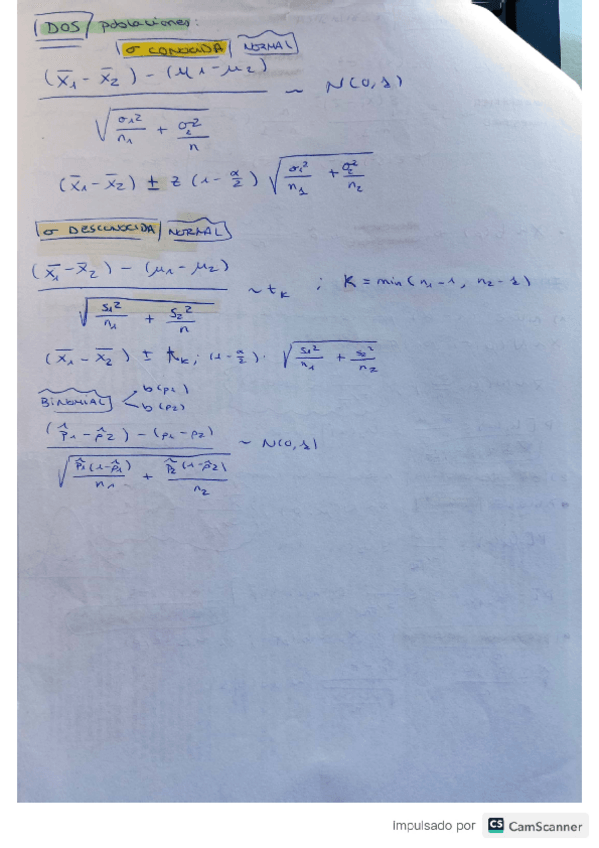 DOS poblaciones:
σ CONOCIDA NORMAL
(x̄₁ - x̄₂) - (μ₁ - μ₂)
√(σ₁²/n₁ + σ₂²/n) ~ N(0,1)
(x̄₁ - x̄₂) ± z (1 - α/2) √(σ₁²/n₁ + σ₂²/n₂)
σ DESCONOCIDA NORMAL
(x̄₁ - x̄₂) - (μ₁ - μ₂)
√(s₁²/n₁ + s₂²/n) ~ t_K ; K = min(n₁-1, n₂-1)
(x̄₁ - x̄₂) ± t_K; (1 - α/2) · √(s₁²/n₁ + s₂²/n₂)
BINOMIAL b(p₁)
b(p₂)
(p̂₁ - p̂₂) - (p₁ - p₂)
√(p̂₁(1-p̂₁)/n₁ + p̂₂(1-p̂₂)/n₂) ~ N(0,1)
Impulsado por CS CamScanner